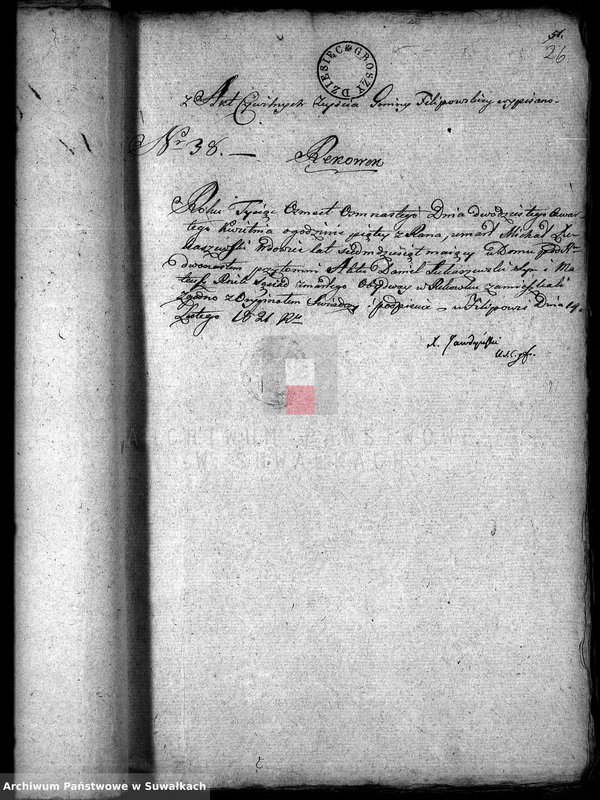 51.
26
DZIESIĘC GROSZY
z Akt Cywilnych Zeyścia Gminy Filipowskiey wypisano
Nr 38. —
Rekowen
Roku Tysiąc Ośmset Ośmnastego Dnia dwudziestego Czwar
tego Kwietnia o godzinie piątey z Rana, umarł Michał Łu
kaszewski Wdowiec lat siedmdziesiąt maiący w Domu pod Nrm
dwunastym przytomni Aktu Daniel Łukaszewski Syn i Ma
teusz Sąsiad zmarłego Obydway w zamieszkali
Zgodno z Oryginałem Świadczę i podpisuię w Filipowie Dnia 19.
Lutego 1821 Rku
X.
U.S.C.G.F.
ARCHIWUM PAŃSTWOWE
W SUWAŁKACH
Archiwum Państwowe w Suwałkach